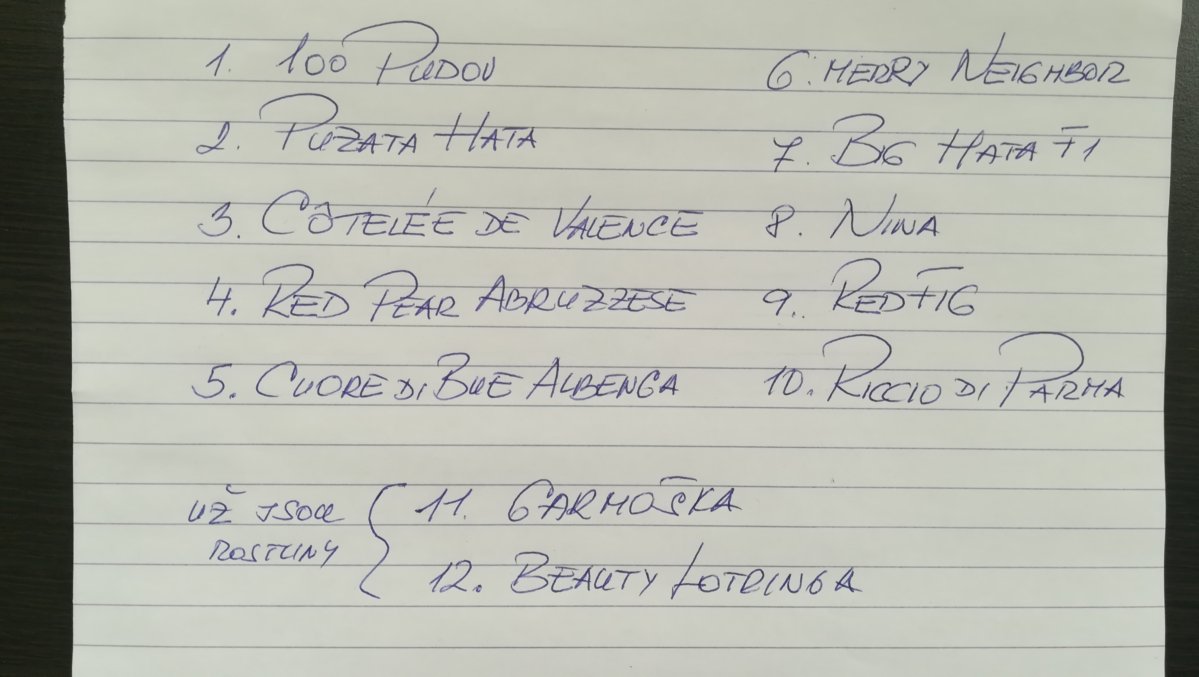 1. 100 PUDOV
2. PUZATA HATA
3. CÔTELÉE DE VALENCE
4. RED PEAR ABRUZZESE
5. CUORE DI BUE ALBENGA
6. MERRY NEIGHBOR
7. BIG HATA F1
8. NINA
9. RED FIG
10. RICCIO DI PARMA
UŽ JSOU ROSTLINY
11. GARMOŠKA
12. BEAUTY LOTRINGA